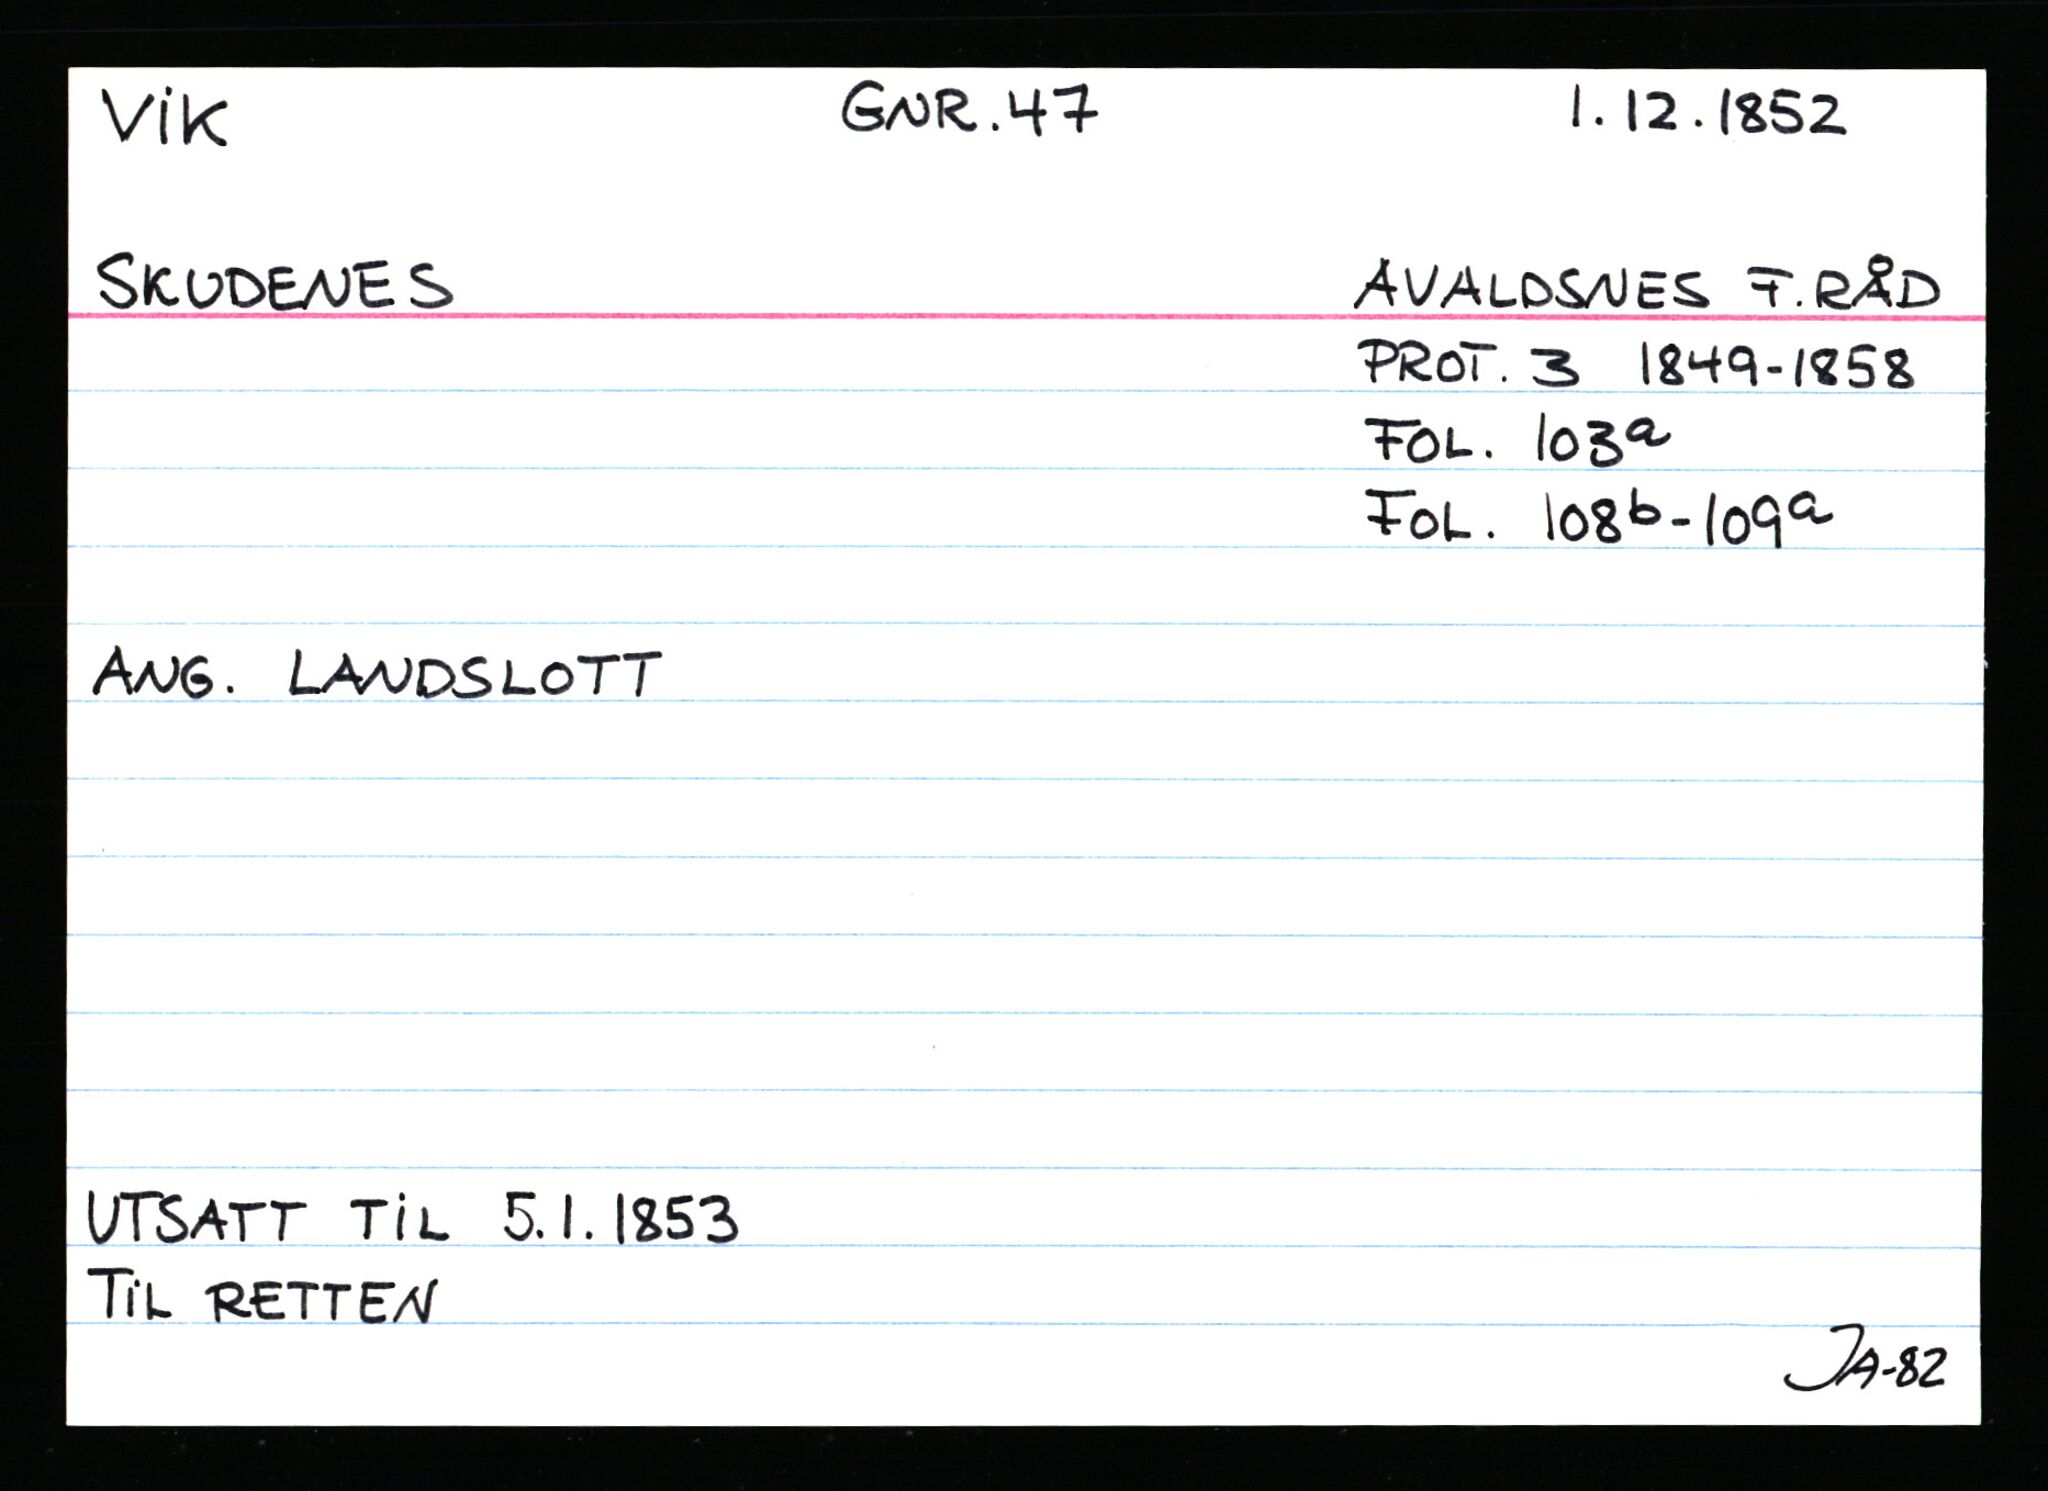 VIK GNR. 47 1.12.1852
SKUDENES AVALDSNES F. RÅD
PROT. 3 1849-1858
FOL. 103a
FOL. 108b-109a
ANG. LANDSLOTT
UTSATT TIL 5.1.1853
TIL RETTEN
JA-82